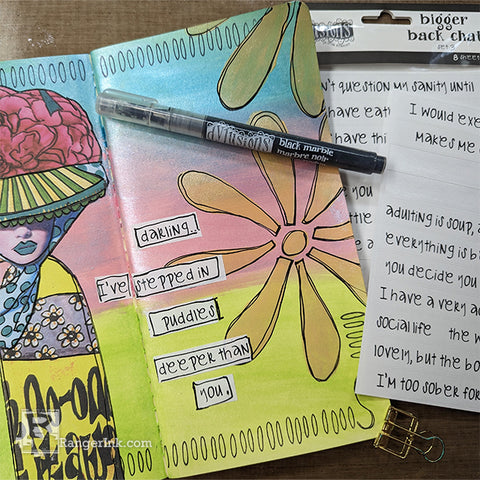 bigger
back chat
set 3
8 sheets
't question my sanity until
have eat
have thi
I would exe
makes me
you
adulting is soup, a
everything is b
you decide you
I have a very ac
social life the w
lovely, but the bo
I'm too sober for
dylusions
black marble
marbre noir
darling...
I've stepped in
puddles
deeper than
you.
R
RangerInk.com